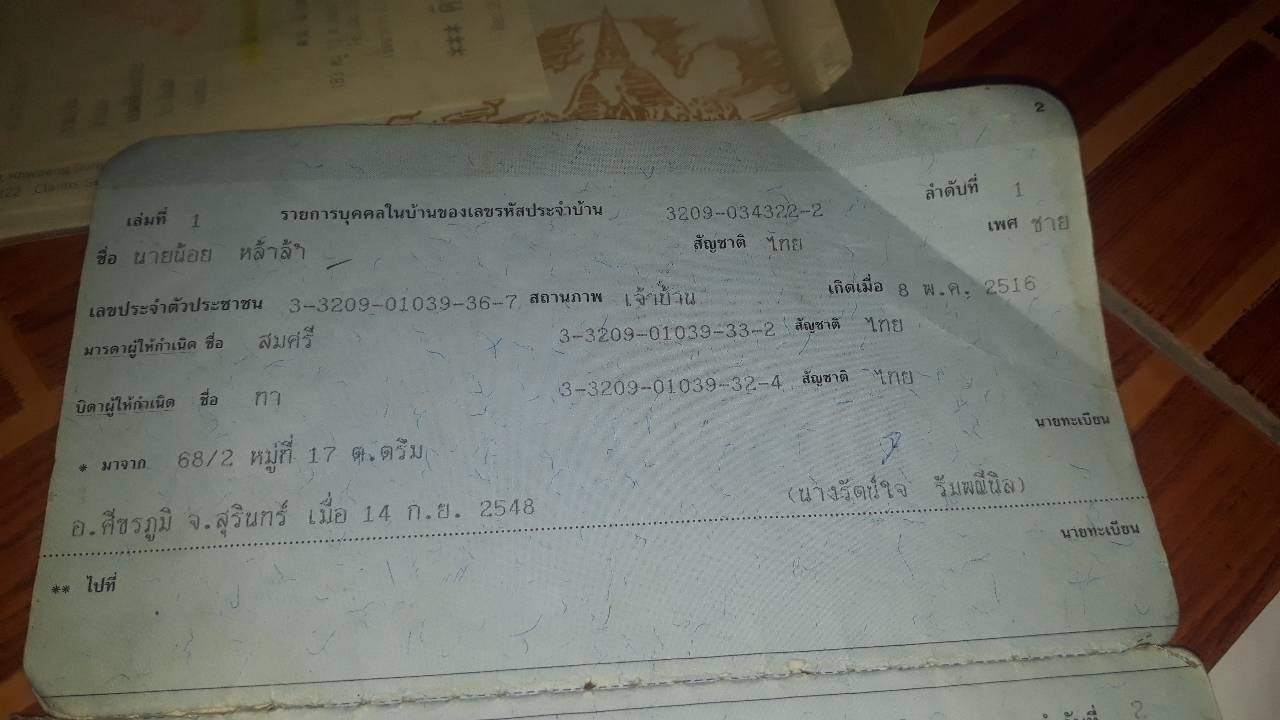 2
เล่มที่ 1 รายการบุคคลในบ้านของเลขรหัสประจำบ้าน 3209-034322-2 ลำดับที่ 1
ชื่อ นายน้อย หล้าล้ำ สัญชาติ ไทย เพศ ชาย
เลขประจำตัวประชาชน 3-3209-01039-36-7 สถานภาพ เจ้าบ้าน เกิดเมื่อ 8 พ.ค. 2516
มารดาผู้ให้กำเนิด ชื่อ สมศรี 3-3209-01039-33-2 สัญชาติ ไทย
บิดาผู้ให้กำเนิด ชื่อ ทา 3-3209-01039-32-4 สัญชาติ ไทย
* มาจาก 68/2 หมู่ที่ 17 ต.ตรึม นายทะเบียน
อ.ศีขรภูมิ จ.สุรินทร์ เมื่อ 14 ก.ย. 2548 (นางรัตน์ใจ
** ไปที่ นายทะเบียน
2